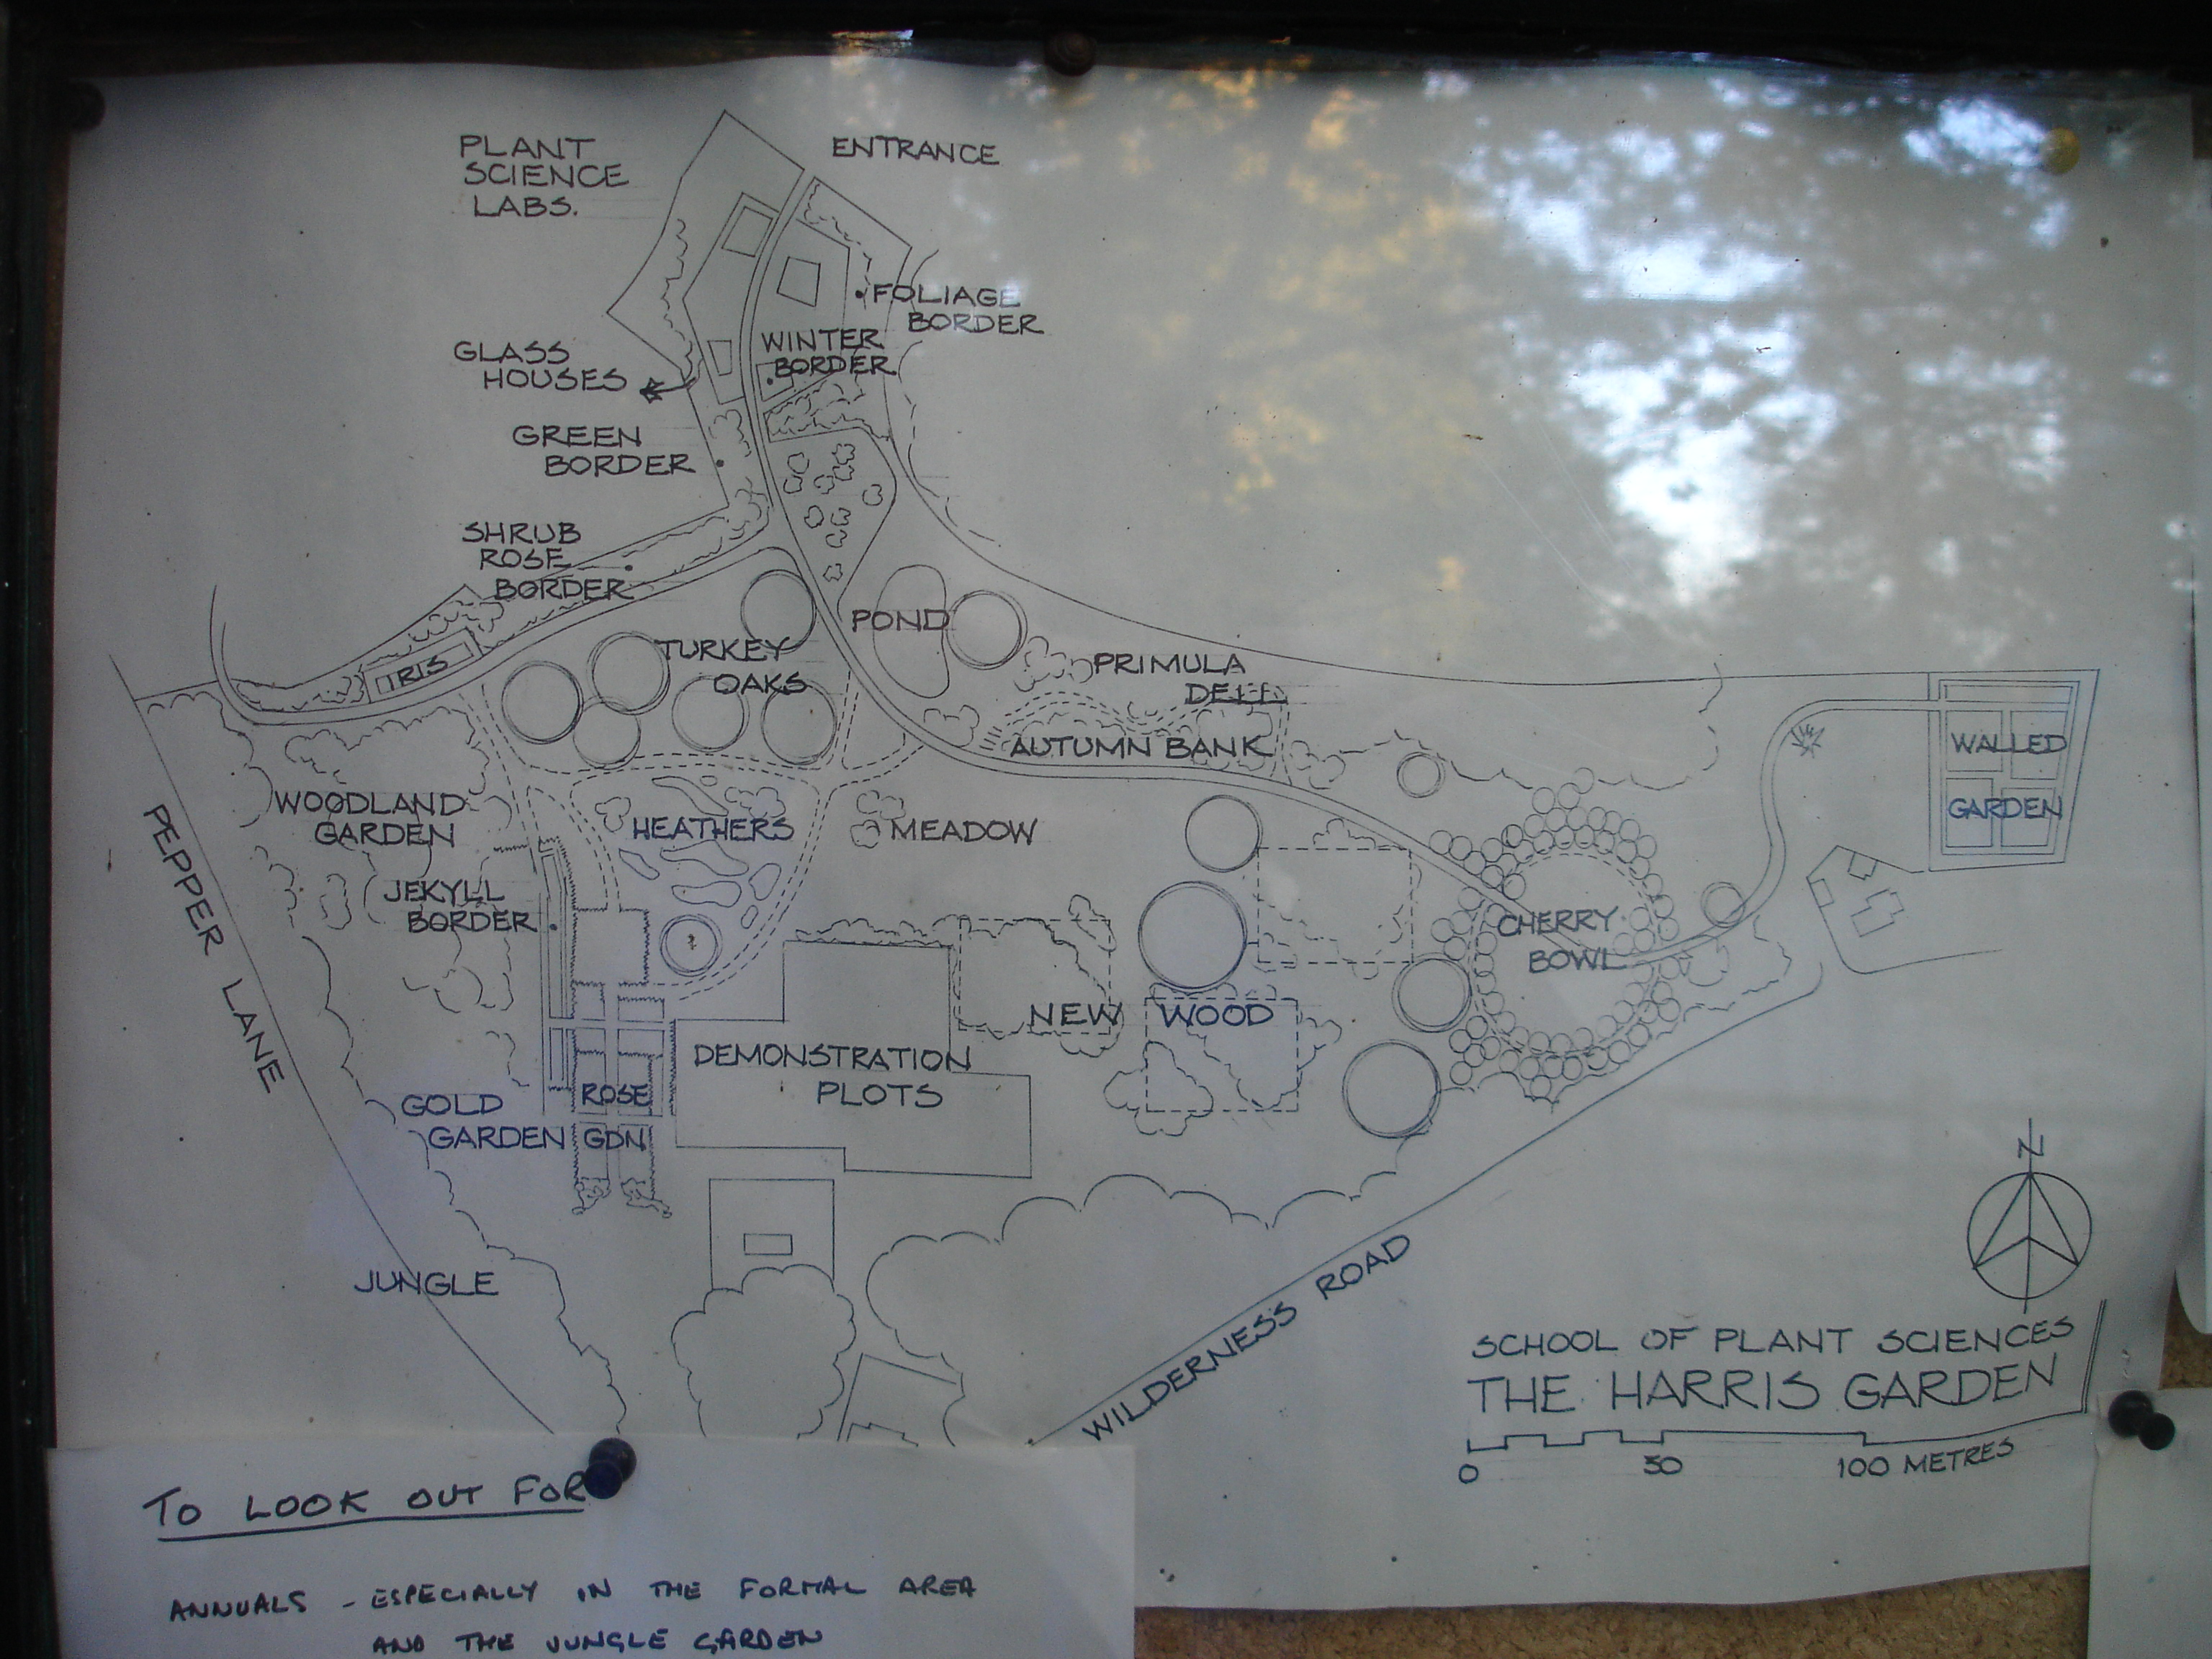 PLANT
SCIENCE
LABS.
ENTRANCE
FOLIAGE
BORDER
WINTER
BORDER
GLASS
HOUSES
GREEN
BORDER
SHRUB
ROSE
BORDER
IRIS
POND
TURKEY
OAKS
PRIMULA
DELL
AUTUMN BANK
WALLED
GARDEN
WOODLAND
GARDEN
HEATHERS
MEADOW
PEPPER LANE
JEKYLL
BORDER
CHERRY
BOWL
NEW WOOD
DEMONSTRATION
PLOTS
ROSE
GDN
GOLD
GARDEN
JUNGLE
WILDERNESS ROAD
N
SCHOOL OF PLANT SCIENCES
THE HARRIS GARDEN
0 50 100 METRES
TO LOOK OUT FOR
ANNUALS - ESPECIALLY IN THE FORMAL AREA
AND THE JUNGLE GARDEN